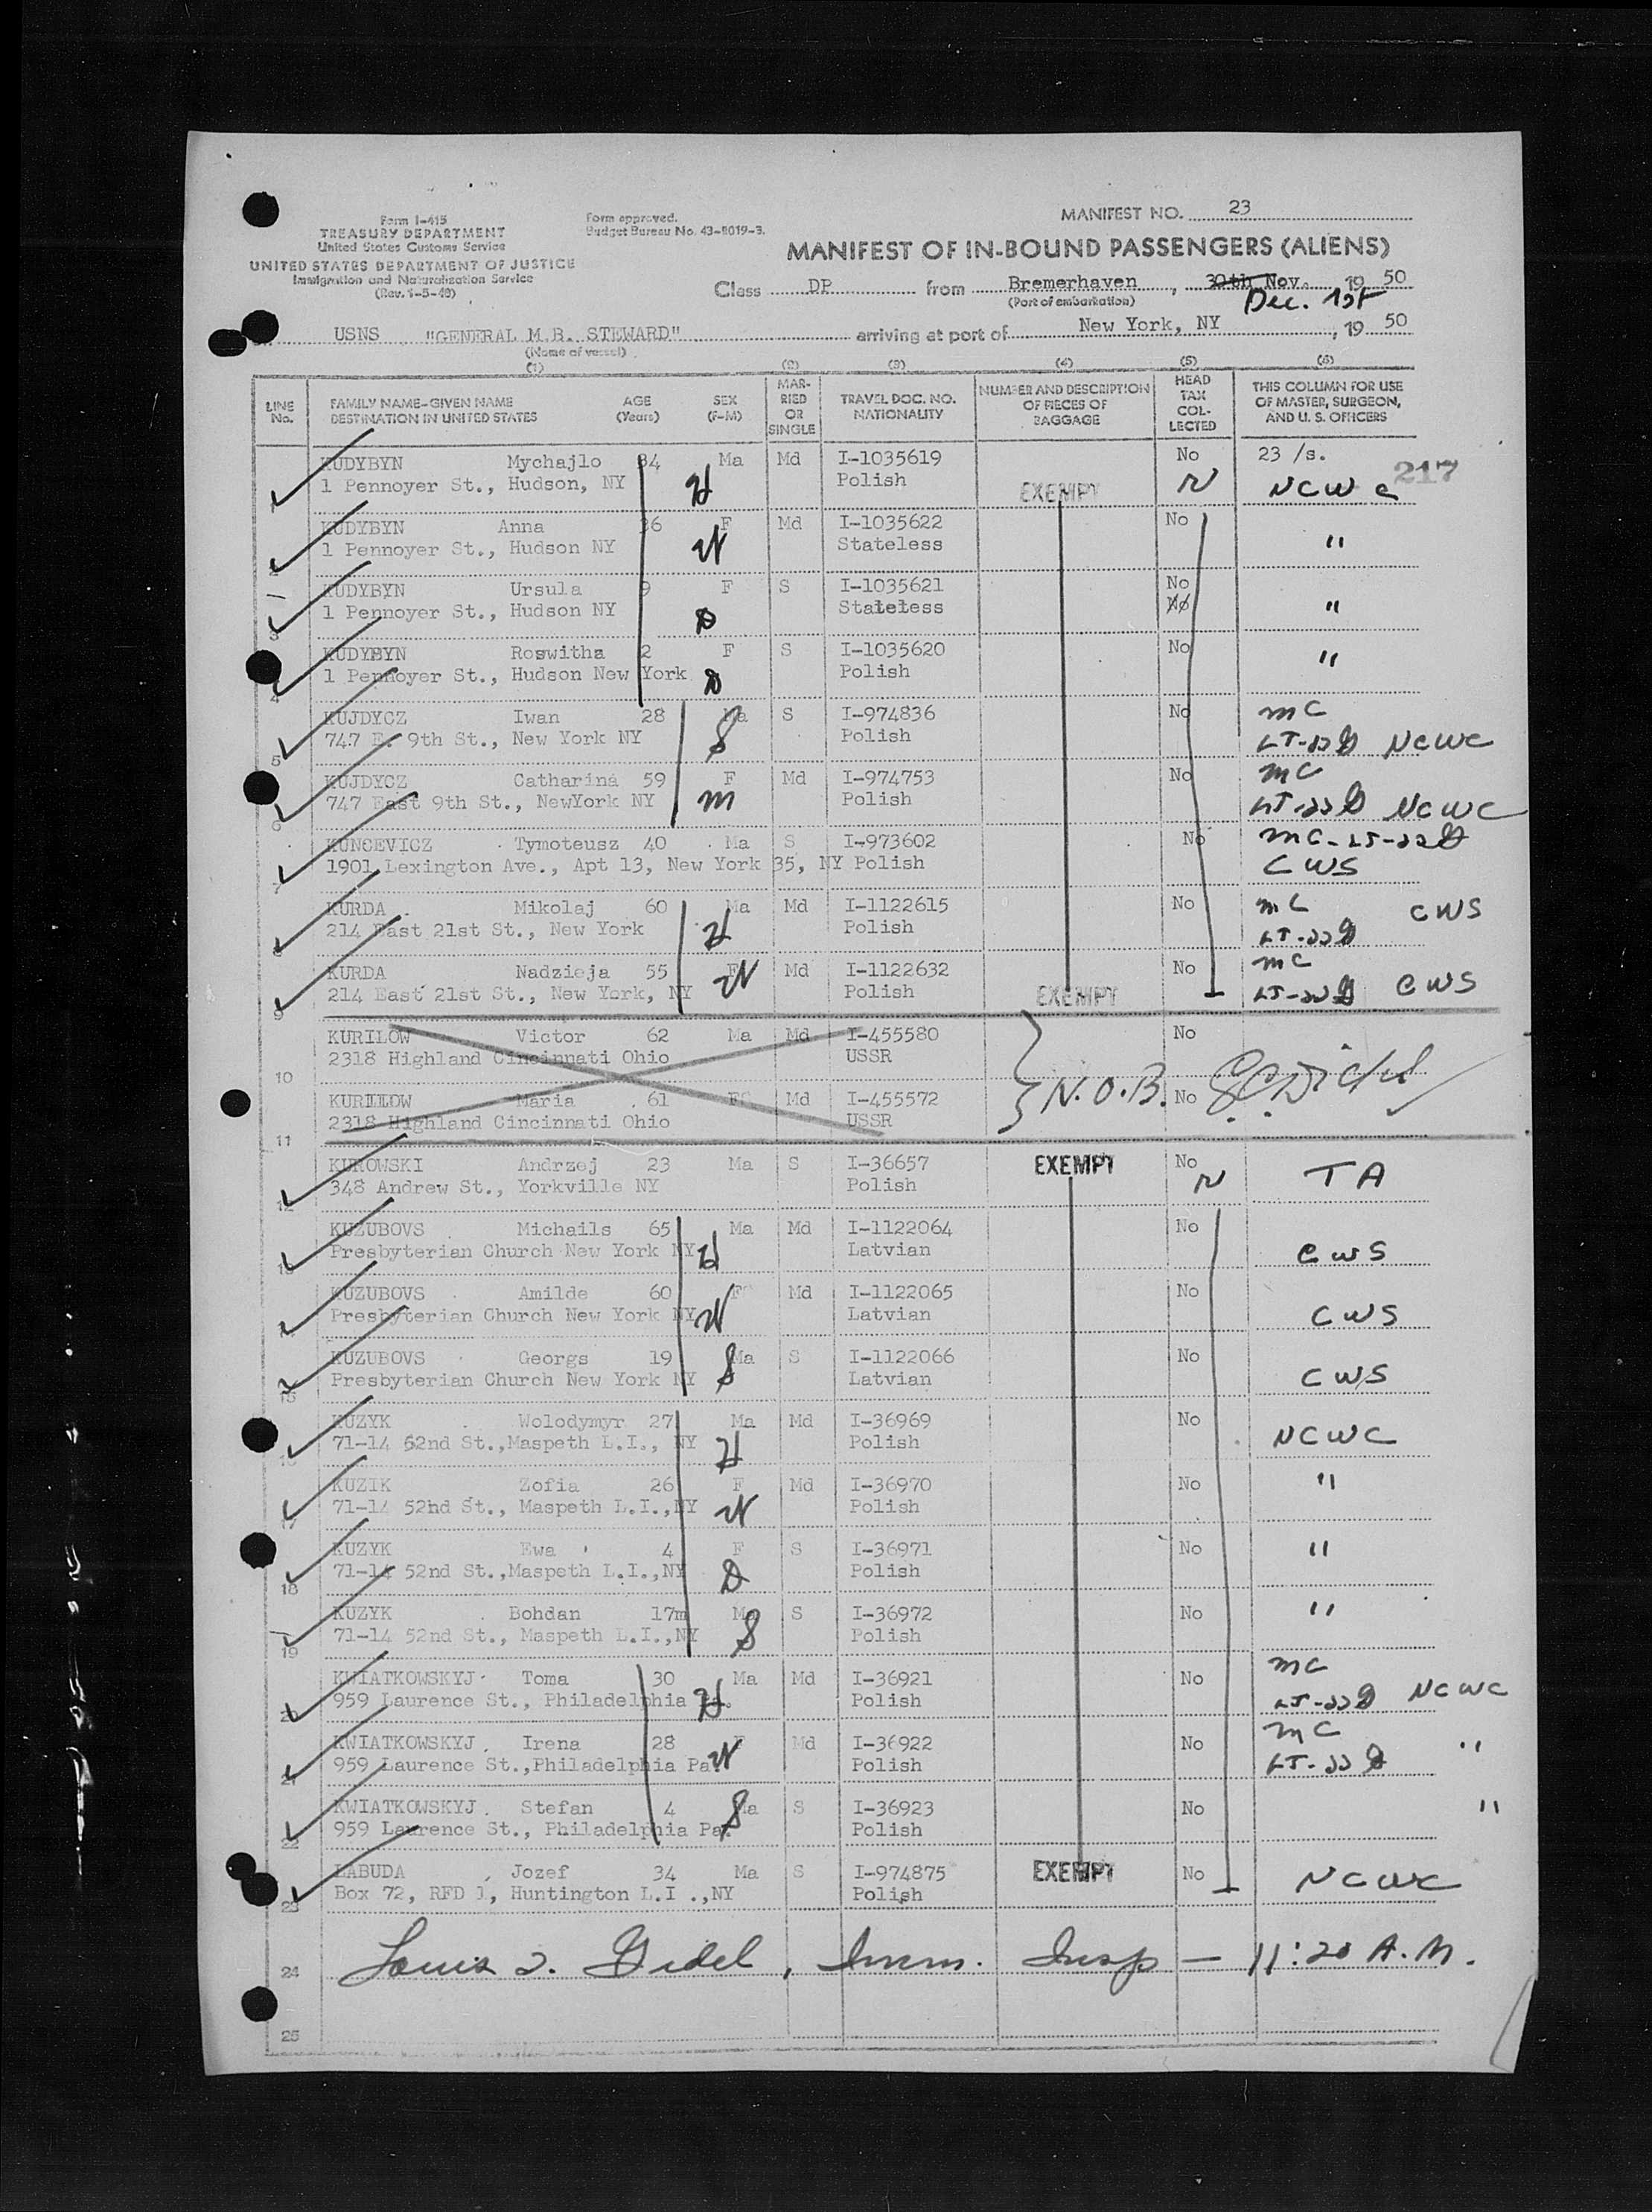 MANIFEST NO. 23
Form I-415
TREASURY DEPARTMENT
United States Customs Service
UNITED STATES DEPARTMENT OF JUSTICE
Immigration and Naturalization Service
(Rev. 1-5-49)
Form approved.
Budget Bureau No. 43-R019-3.
MANIFEST OF IN-BOUND PASSENGERS (ALIENS)
Class DP from Bremerhaven, 30th Nov. 19 50
(Port of embarkation) Dec. 1st
USNS "GENERAL M.B. STEWARD" arriving at port of New York, NY, 19 50
(Name of vessel)
(1) (2) (3) (4) (5) (6)
LINE No. FAMILY NAME-GIVEN NAME DESTINATION IN UNITED STATES AGE (Years) SEX (F-M) MARRIED OR SINGLE TRAVEL DOC. NO. NATIONALITY NUMBER AND DESCRIPTION OF PIECES OF BAGGAGE HEAD TAX COLLECTED THIS COLUMN FOR USE OF MASTER, SURGEON, AND U. S. OFFICERS
KUDYBYN Mychajlo 34 Ma Md I-1035619 No 23 /s.
1 Pennoyer St., Hudson, NY H Polish EXEMPT N NCWC 217
KUDYBYN Anna 36 F Md I-1035622 No
1 Pennoyer St., Hudson NY W Stateless "
KUDYBYN Ursula 9 F S I-1035621 No
1 Pennoyer St., Hudson NY D Stateless No "
3
KUDYBYN Roswitha 2 F S I-1035620 No "
1 Pennoyer St., Hudson New York D Polish
4
KUJDYCZ Iwan 28 Ma S I-974836 No MC
747 E. 9th St., New York NY S Polish LT-22 NCWC
5
KUJDYCZ Catharina 59 F Md I-974753 No MC
747 East 9th St., NewYork NY M Polish LT-22 NCWC
6
KUNCEVICZ Tymoteusz 40 Ma S I-973602 No MC-LT-22
1901 Lexington Ave., Apt 13, New York 35, NY Polish CWS
7
KURDA Mikolaj 60 Ma Md I-1122615 No MC CWS
214 East 21st St., New York H Polish LT-22
8
KURDA Nadzieja 55 F Md I-1122632 No MC
214 East 21st St., New York, NY W Polish EXEMPT LT-22 CWS
9
KURILOW Victor 62 Ma Md I-455580 No
2318 Highland Cincinnati Ohio USSR
10 N.O.B.
KURILOW Maria 61 F Md I-455572 No
2318 Highland Cincinnati Ohio USSR
11
KUROWSKI Andrzej 23 Ma S I-36657 EXEMPT No TA
348 Andrew St., Yorkville NY Polish N
12
KUZUBOVS Michails 65 Ma Md I-1122064 No
Presbyterian Church New York NY H Latvian CWS
13
KUZUBOVS Amilde 60 F Md I-1122065 No
Presbyterian Church New York NY W Latvian CWS
KUZUBOVS Georgs 19 Ma S I-1122066 No
Presbyterian Church New York NY S Latvian CWS
15
KUZYK Wolodymyr 27 Ma Md I-36969 No
71-14 62nd St.,Maspeth L.I., NY H Polish NCWC
KUZIK Zofia 26 F Md I-36970 No "
71-14 52hd St., Maspeth L.I.,NY W Polish
17
KUZYK Ewa 4 F S I-36971 No "
71-14 52nd St.,Maspeth L.I.,NY D Polish
18
KUZYK Bohdan 17m Ma S I-36972 No "
71-14 52nd St., Maspeth L.I.,NY S Polish
19
KWIATKOWSKYJ Toma 30 Ma Md I-36921 No MC
959 Laurence St., Philadelphia Pa. H Polish LT-22 NCWC
KWIATKOWSKYJ Irena 28 F Md I-36922 No MC "
959 Laurence St.,Philadelphia Pa. W Polish LT-22
21
KWIATKOWSKYJ Stefan 4 Ma S I-36923 No "
959 Laurence St., Philadelphia Pa. S Polish
22
LABUDA Jozef 34 Ma S I-974875 EXEMPT No NCWC
Box 72, RFD 1, Huntington L.I .,NY Polish
23
24 Louis J. Gidel, Imm. Insp — 11:20 A.M.
25